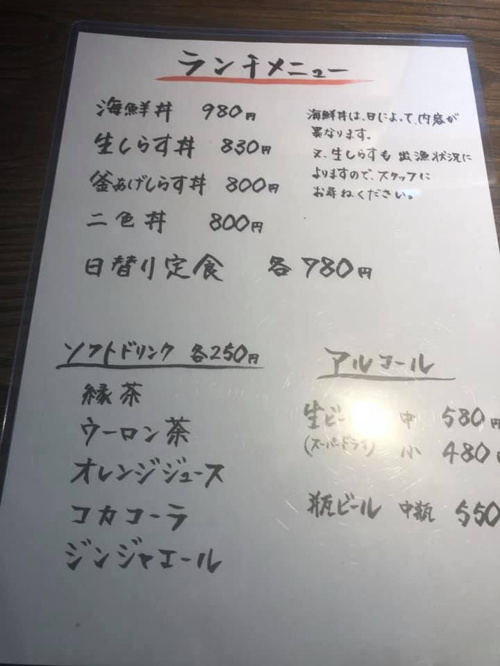 ランチメニュー
海鮮丼 980円
生しらす丼 830円
釜あげしらす丼 800円
二色丼 800円
日替り定食 各780円
海鮮丼は、日によって、内容が
異なります。
又、生しらすも出漁状況に
よりますので、スタッフに
お尋ねください。
ソフトドリンク 各250円
緑茶
ウーロン茶
オレンジジュース
コカコーラ
ジンジャエール
アルコール
生ビール 中 580円
(スーパードライ) 小 480円
瓶ビール 中瓶 550